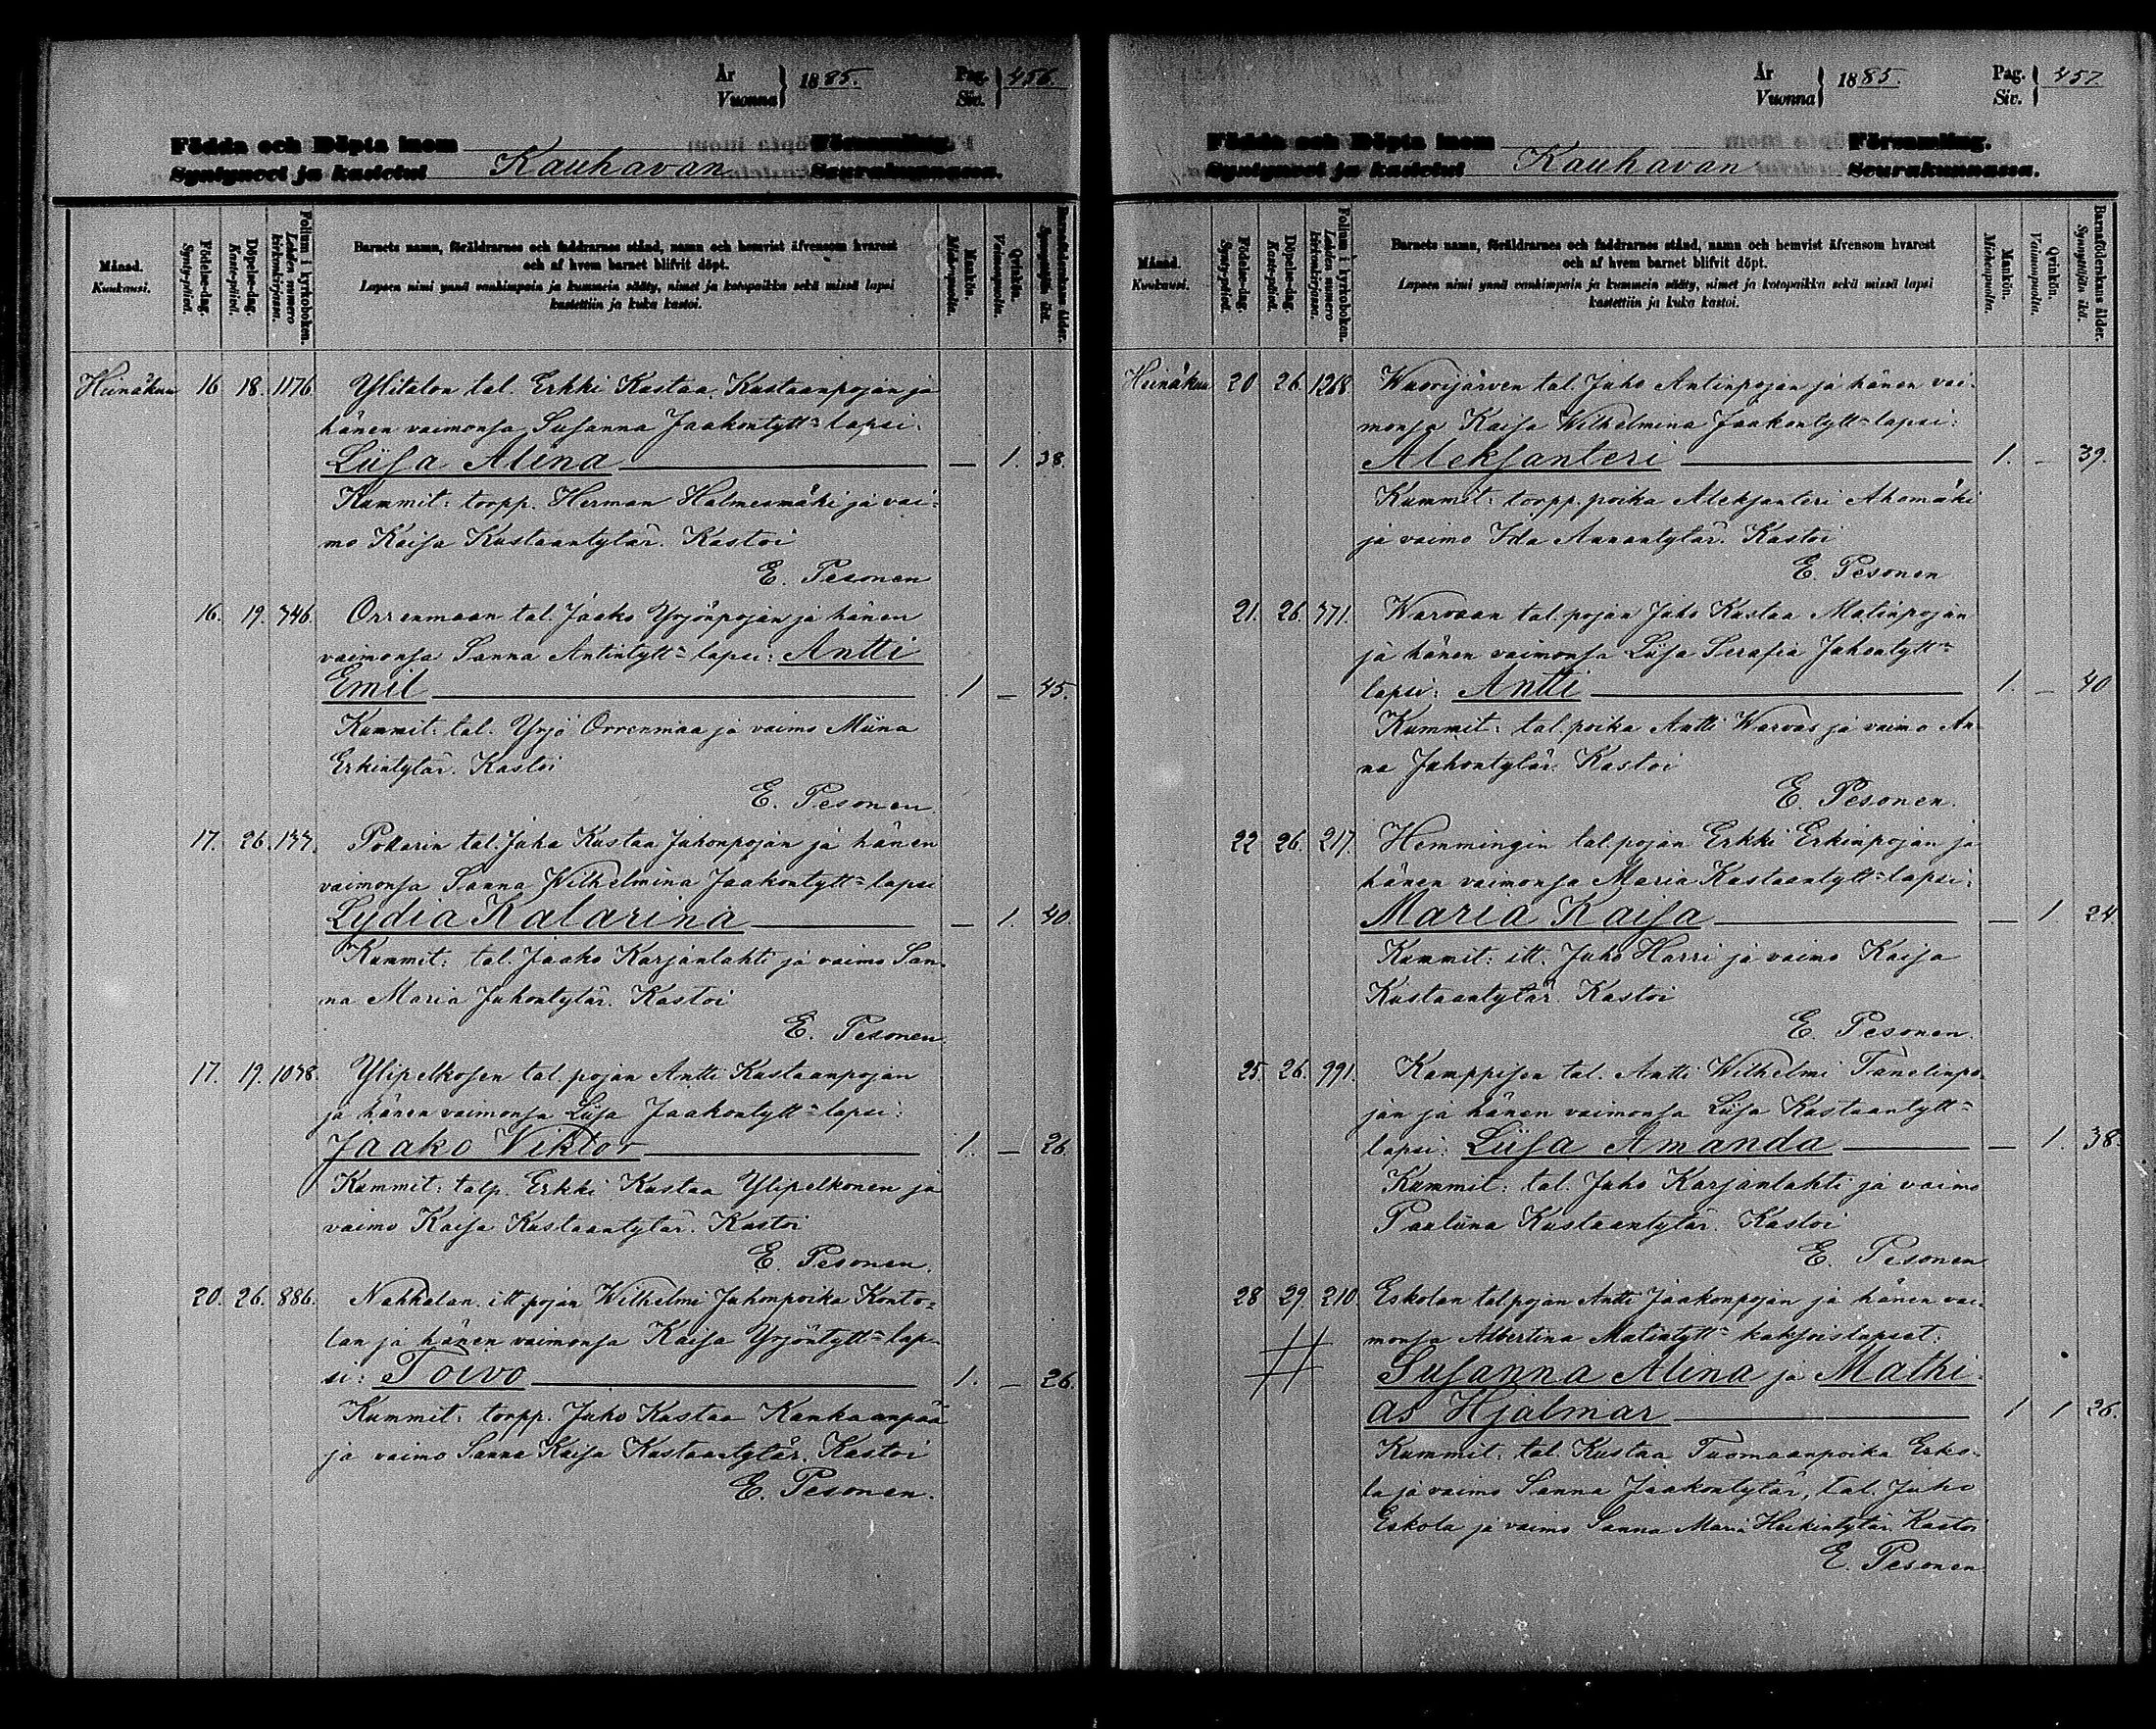 År
Vuonna } 1885. Pag.
Siv. } 456.
Födda och Döpta inom Församling.
Syntyneet ja kastetut Kauhavan Seurakunnassa.
Månad.
Kuukausi.
Födelse-dag.
Synty-päivä.
Döpelse-dag.
Kaste-päivä.
Folium i kyrkoboken.
Lehden numero kirkonkirjassa.
Barnets namn, föräldrarnes och faddrarnes stånd, namn och hemvist äfvensom hvarest
och af hvem barnet blifvit döpt.
Lapsen nimi ynnä vanhimpain ja kummein sääty, nimet ja kotopaikka sekä missä lapsi
kastettiin ja kuka kastoi.
Mankön.
Miehenpuolta.
Qvinkön.
Vaimonpuolta.
Barnaföderskans ålder.
Synnyttäjän ikä.
Heinäkuu 16 18. 1176. Ylitalon tal. Erkki Kustaa Kustaanpojan ja
hänen vaimonsa Susanna Jaakontytt= lapsi:
Liisa Alina — 1. 38.
Kummit: torpp. Herman Halmesmäki ja vai-
mo Kaisa Kustaantytär. Kastoi
E. Pesonen
16. 19. 746. Orrenmaan tal. Jaako Yrjönpojan ja hänen
vaimonsa Sanna Antintytt= lapsi: Antti
Emil 1 — 45.
Kummit: tal. Yrjö Orrenmaa ja vaimo Miina
Erkintytär. Kastoi
E. Pesonen.
17. 26. 137. Pollarin tal. Juha Kustaa Juhonpojan ja hänen
vaimonsa Sanna Wilhelmina Jaakontytt= lapsi
Lydia Katarina — 1. 40.
Kummit: tal. Jaako Karjanlahti ja vaimo San-
na Maria Juhontytär. Kastoi
E. Pesonen.
17. 19. 1078. Ylipelkosen tal. pojan Antti Kustaanpojan
ja hänen vaimonsa Liisa Jaakontytt= lapsi:
Jaako Viktor 1. — 26.
Kummit: talp. Erkki Kustaa Ylipelkonen ja
vaimo Kaisa Kustaantytär. Kastoi
E. Pesonen.
20. 26. 886. Nahkalan itt pojan Wilhelmi Juhonpoika Konto-
lan ja hänen vaimonsa Kaisa Yrjöntytt= lap-
si: Toivo 1. — 26.
Kummit: torpp. Juho Kustaa Kankaanpää
ja vaimo Sanna Kaisa Kustaantytär. Kastoi
E. Pesonen.
År
Vuonna } 1885. Pag.
Siv. } 457.
Födda och Döpta inom Församling.
Syntyneet ja kastetut Kauhavan Seurakunnassa.
Månad.
Kuukausi.
Födelse-dag.
Synty-päivä.
Döpelse-dag.
Kaste-päivä.
Folium i kyrkoboken.
Lehden numero kirkonkirjassa.
Barnets namn, föräldrarnes och faddrarnes stånd, namn och hemvist äfvensom hvarest
och af hvem barnet blifvit döpt.
Lapsen nimi ynnä vanhimpain ja kummein sääty, nimet ja kotopaikka sekä missä lapsi
kastettiin ja kuka kastoi.
Mankön.
Miehenpuolta.
Qvinkön.
Vaimonpuolta.
Barnaföderskans ålder.
Synnyttäjän ikä.
Heinäkuu 20 26. 1268. Wuorijärven tal. Juho Antinpojan ja hänen vai-
monsa Kaisa Wilhelmina Jaakontytt= lapsi:
Aleksanteri 1. — 39.
Kummit: torpp. poika Aleksanteri Ahomäki
ja vaimo Ida Anantytär. Kastoi
E. Pesonen
21. 26. 771. Warvaan tal. pojan Juho Kustaa Matinpojan
ja hänen vaimonsa Liisa Serafia Juhontytt=
lapsi: Antti 1. — 40
Kummit: tal. poika Antti Warvas ja vaimo An-
na Juhontytär. Kastoi
E. Pesonen.
22 26. 217. Hemmingin tal. pojan Erkki Erkinpojan ja
hänen vaimonsa Maria Kustaantytt= lapsi:
Maria Kaisa — 1 24
Kummit: itt. Juho Harri ja vaimo Kaisa
Kustaantytär. Kastoi
E. Pesonen.
25. 26. 991. Kamppisen tal. Antti Wilhelmi Tanelinpo-
jan ja hänen vaimonsa Liisa Kustaantytt=
lapsi: Liisa Amanda — 1. 38.
Kummit: tal. Juho Karjanlahti ja vaimo
Pauliina Kustaantytär. Kastoi
E. Pesonen
28 29. 210 Eskolan tal.pojan Antti Jaakonpojan ja hänen vai-
monsa Albertina Matintytt= kaksoislapset:
Susanna Alina ja Mathi-
as Hjalmar 1 1 26.
Kummit: tal. Kustaa Tuomaanpoika Erko-
la ja vaimo Sanna Jaakontytär, tal. Juho
Eskola ja vaimo Sanna Maria Heikintytär. Kastoi
E. Pesonen